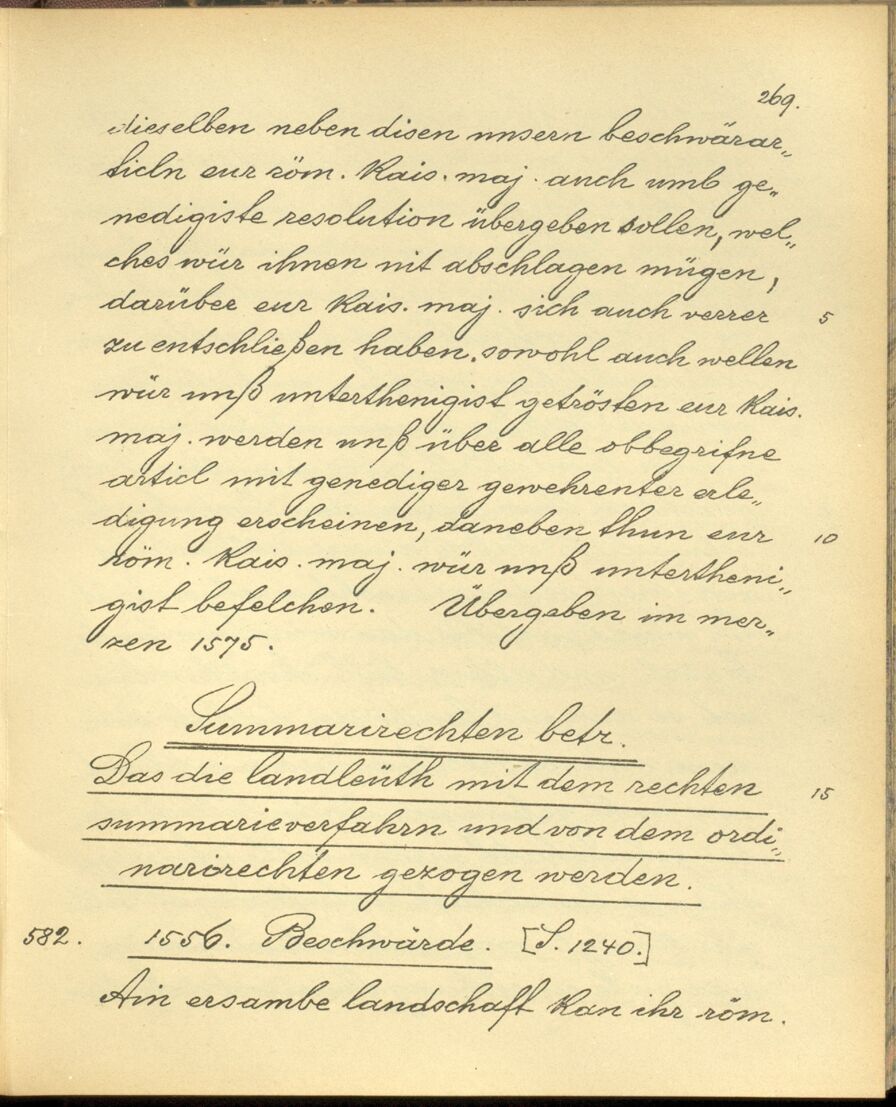 269.
dieselben neben disen unsern beschwärar„
ticln eur röm. Kais. maj. auch umb ge„
nedigiste resolution übergeben sollen, wel„
ches wür ihnen nit abschlagen mügen,
darüber eur Kais. maj. sich auch verrer 5
zu entschließen haben. sowohl auch wellen
wür unß unterthenigist getrösten eur Kais.
maj. werden unß über alle obbegrifne
articl mit genediger gewehrenter erle„
digung erscheinen, daneben thun eur 10
röm. Kais. maj. wür unß untertheni„
gist befelchen. Übergeben im mer„
zen 1575.
Summarirechten betr.
Das die landleüth mit dem rechten 15
summarie verfahrn und von dem ordi„
narirechten gezogen werden.
582. 1556. Beschwärde. [S. 1240.]
Ain ersambe landschaft kan ihr röm.